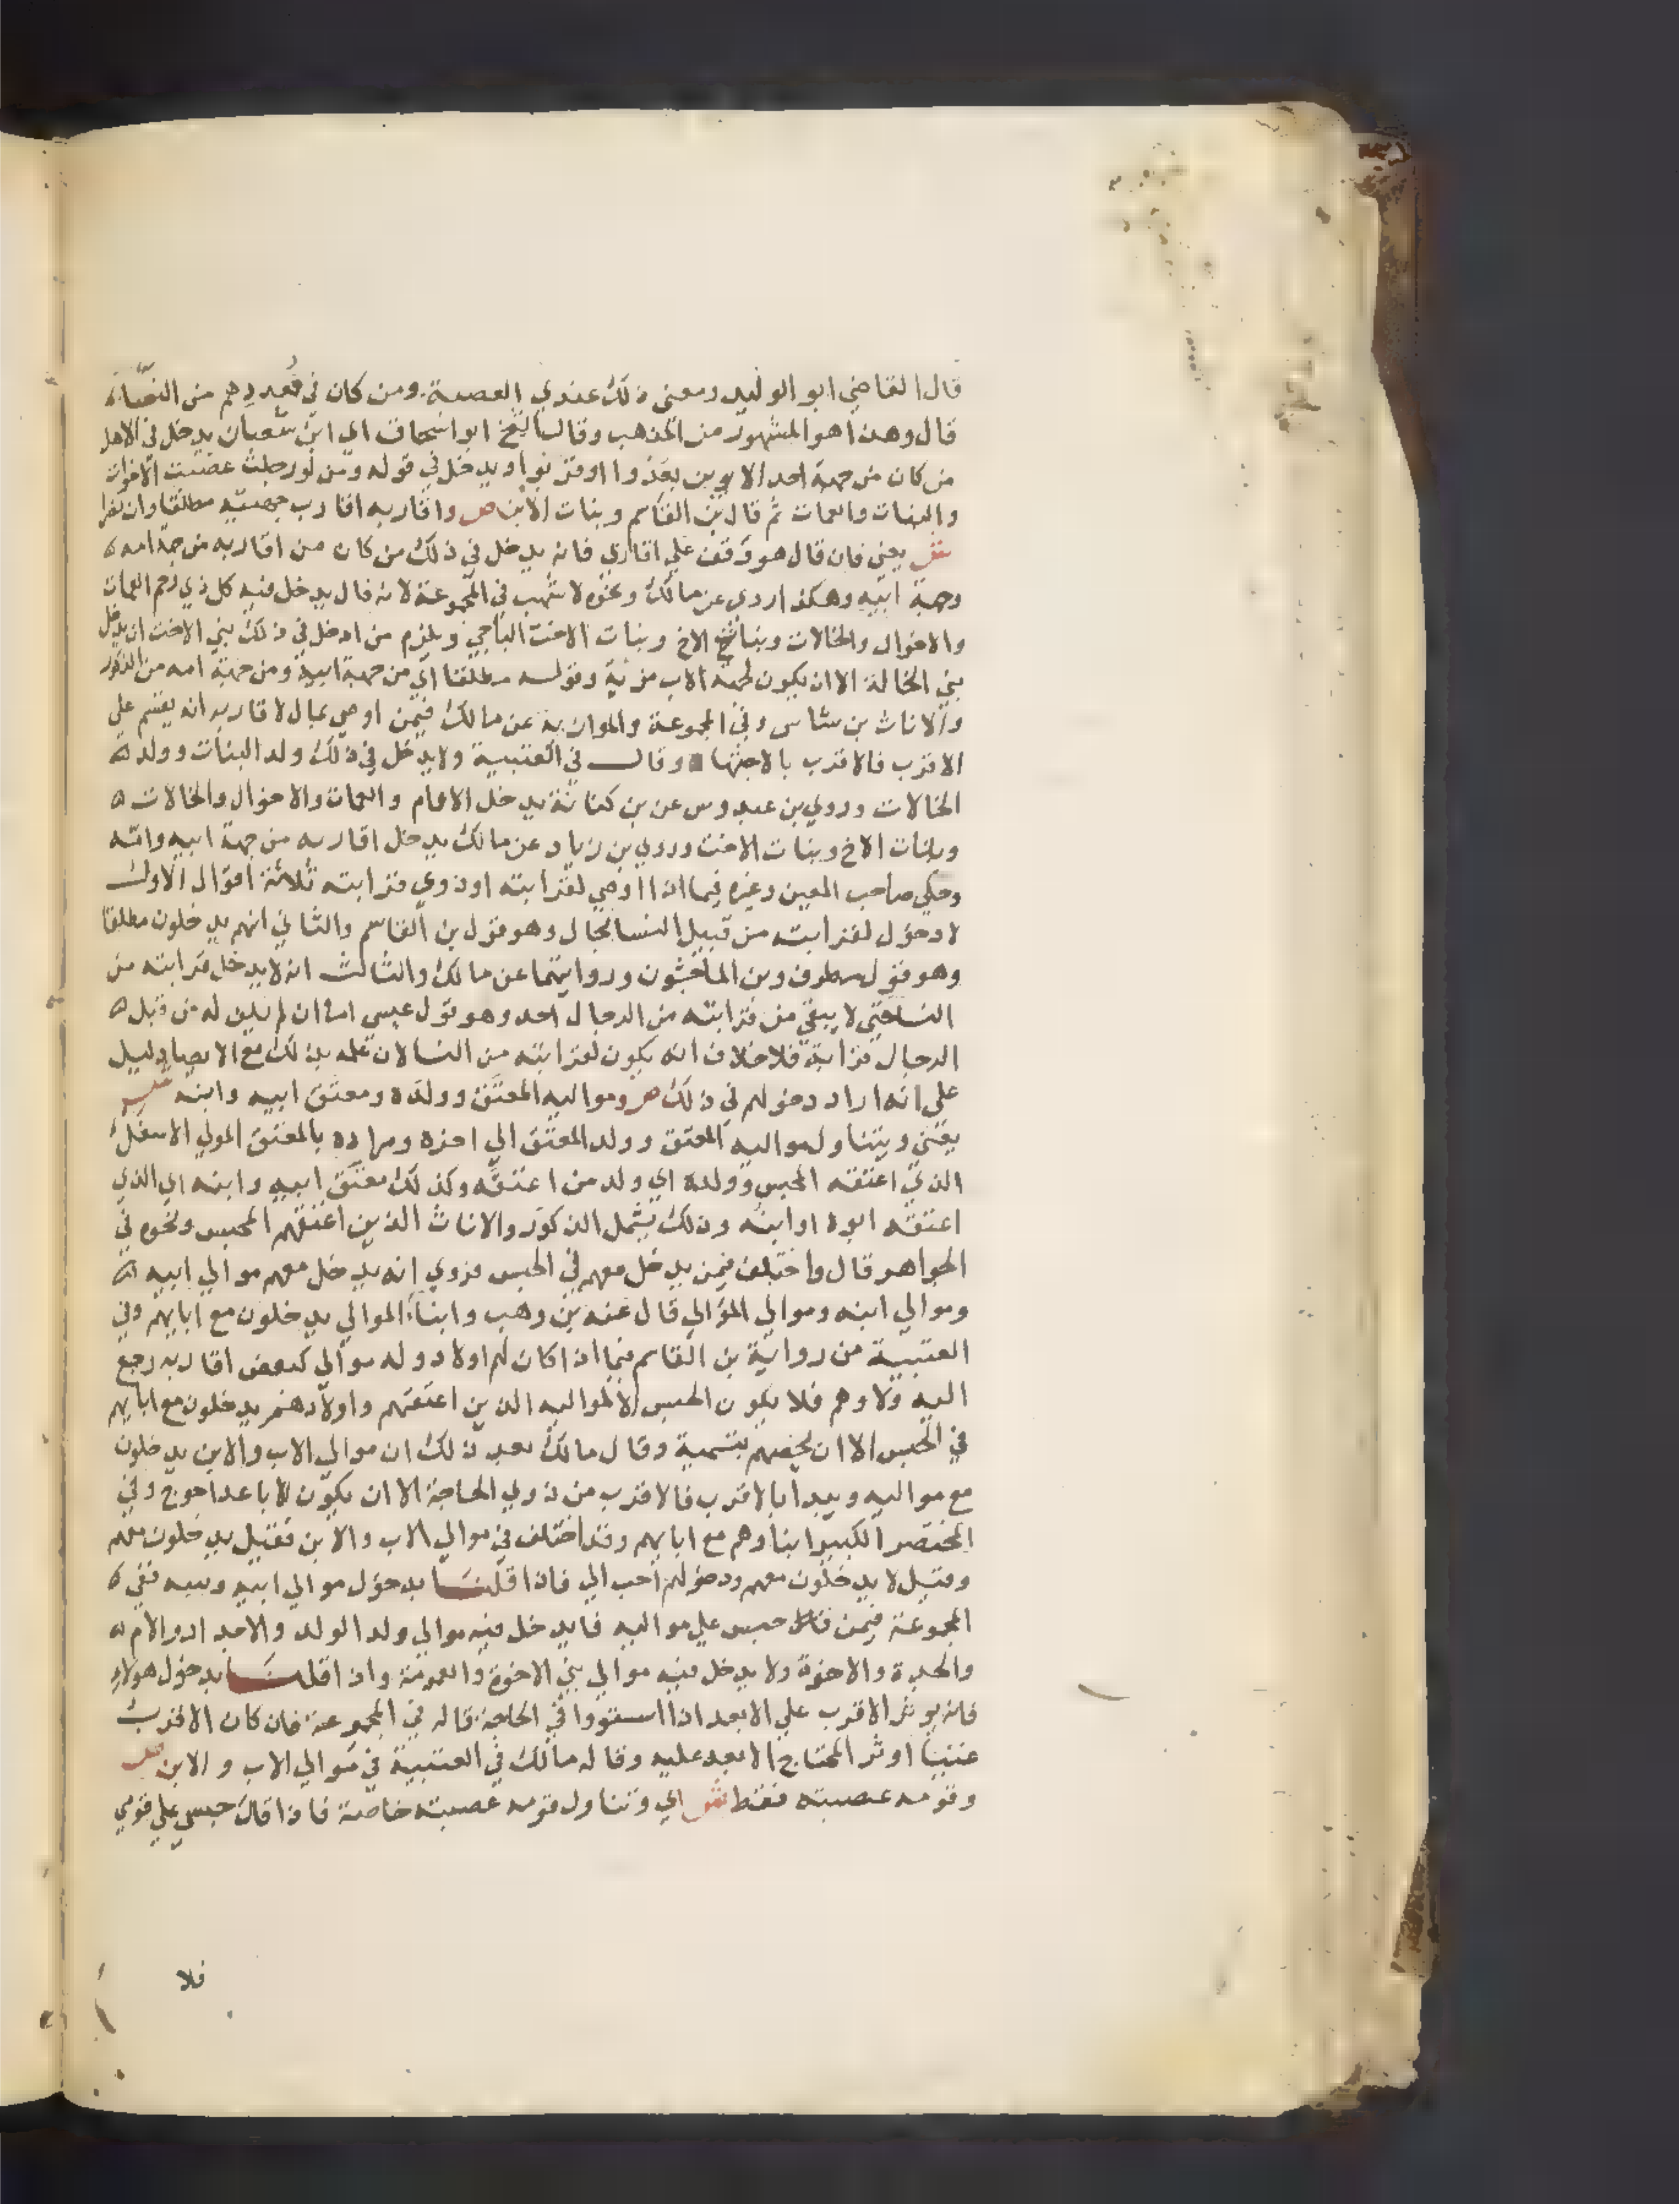 قال القاضي ابو الوليد ومعنى ذلك عندي العصبة ومن كان في قعددهم من النساء
قال وهذا هو المشهور من المذهب وقال الشيخ ابو اسحاق اي ابن شعبان يدخل في الاهل
من كان من جهة احد الابوين بعدوا او قربوا ويدخل في قوله ومن لو رجلت عصبت الاخوات
والبنات والعمات ثم قال بن القاسم وبنات الابن ص واقاربه اقارب جهتيه مطلقا وان نصرا
ش يعني فان قال هو وقف علي اقاربي فانه يدخل في ذلك من كان من اقاربه من جهة امه
وجهة ابيه وهكذا روى عن مالك ونحوه لاشهب في المجموعة لانه قال يدخل فيه كل ذي رحم العمات
والاخوال والخالات وبنات الاخ وبنات الاخت الباجي ويلزم من ادخل في ذلك بني الاخت ان يدخل
بني الخالة الا ان يكون لجهة الاب مزية وقوله مطلقا اي من جهة ابيه ومن جهة امه من الذكور
والاناث بن شاس وفي المجموعة والموازية عن مالك فيمن اوصي بمال لاقاربه انه يقسم علي
الاقرب فالاقرب بالاجتهاد وقال في العتبية ولا يدخل في ذلك ولد البنات وولد
الخالات وروي بن عبدوس عن بن كنانة يدخل الاعمام والعمات والاخوال والخالات
وبنات الاخ وبنات الاخت وروي بن زياد عن مالك يدخل اقاربه من جهة ابيه وامه
وحكي صاحب المعين وغيره فيما اذا اوصي لقرابته او ذوي قرابته ثلاثة اقوال الاول
لا دخول لقرابته من قبيل النسا بحال وهو قول بن القاسم والثاني انهم يدخلون مطلقا
وهو قول مطرف وبن الماجشون وروايتهما عن مالك والثالث انه لا يدخل قرابته من
النسا حتي لا يبقي من قرابته من الرجال احد وهو قول عيسي اما ان لم يكن له من قبل
الرجال قرابة فلا خلاف انه يكون لقرابته من النسا لان علمه بذلك مع الايصا دليل
علي انه اراد دخولهم في ذلك ص ومواليه المعتق وولده ومعتق ابيه وابنه ش
يعني ويتناول مواليه المعتق وولد المعتق الي اخره ومراده بالمعتق المولي الاسفل
الذي اعتقه المحبس وولده اي ولد من اعتقه وكذلك معتق ابيه وابنه اي الذي
اعتقه ابوه او ابنه وذلك يشمل الذكور والاناث الذين اعتقهم المحبس ونحوه في
الجواهر قال واختلف فيمن يدخل معهم في الحبس فروي انه يدخل معهم موالي ابيه
وموالي ابنه وموالي الموالي قال عنه بن وهب وابناء الموالي يدخلون مع ابايهم وفي
العتبية من رواية بن القاسم فيما اذا كان لهم اولاد وله موالي كبعض اقاربه رجع
اليه ولاوهم فلا يكون الحبس الا لمواليه الذين اعتقهم واولادهم يدخلون مع ابايهم
في الحبس الا ان يخصهم بتسمية وقال مالك بعد ذلك ان موالي الاب والابن يدخلون
مع مواليه ويبدا بالاقرب فالاقرب من ذوي الحاجة الا ان يكون الاباعد احوج وفي
المختصر الكبير ابناوهم مع ابايهم وقد اختلف في موالي الاب والابن فقيل يدخلون معهم
وقيل لا يدخلون معهم ودخولهم احب الي فاذا قلنا بدخول موالي ابيه وبنيه ففي
المجموعة فيمن قال حبس علي مواليه فا يدخل فيه موالي ولد الولد والاجداد والام
والجدة والاخوة ولا يدخل فيه موالي بني الاخوة والعمومة واذا قلنا بدخول هولاء
فانه يوثر الاقرب علي الابعد اذا استووا في الحاجة قاله في المجموعة فان كان الاقرب
غنيا اوثر المحتاج الابعد عليه وقاله مالك في العتبية في موالي الاب والابن ص
وقومه عصبته فقط ش اي وتناول قومه عصبته خاصة فاذا قال حبس علي قومي
فلا